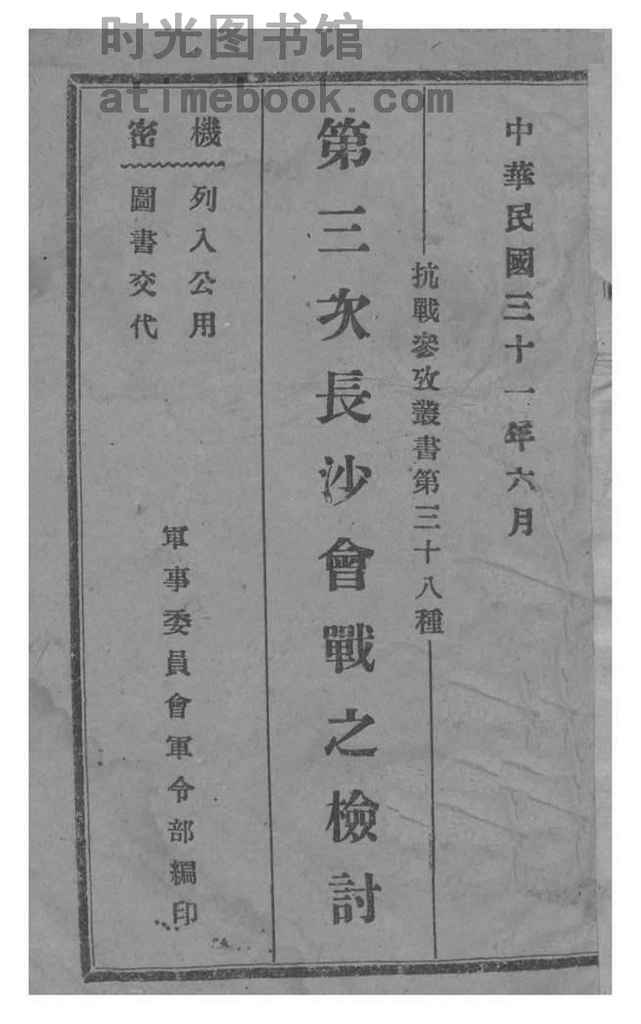 时光图书馆
atimebook.com
中華民國三十一年六月
抗戰參攷叢書第三十八種
第三次長沙會戰之檢討
機密
列入公用
圖書交代
軍事委員會軍令部編印